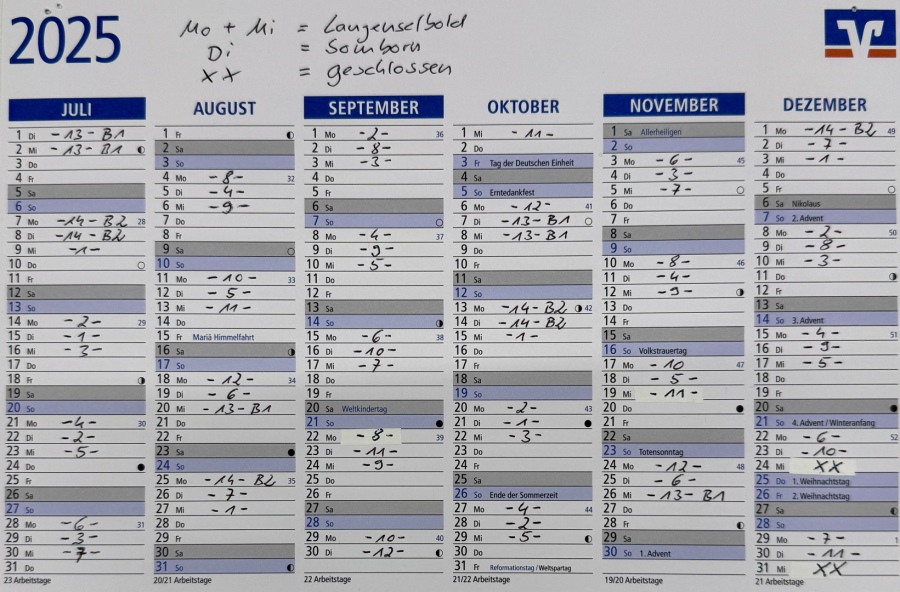 2025
Mo + Mi = Langenselbold
Di = Somborn
XX = geschlossen
JULI
1 Di -13- B1
2 Mi -13- B1
3 Do
4 Fr
5 Sa
6 So
7 Mo -14- B2 28
8 Di -14- B2
9 Mi -1-
10 Do
11 Fr
12 Sa
13 So
14 Mo -2- 29
15 Di -1-
16 Mi -3-
17 Do
18 Fr
19 Sa
20 So
21 Mo -4- 30
22 Di -2-
23 Mi -5-
24 Do
25 Fr
26 Sa
27 So
28 Mo -6- 31
29 Di -3-
30 Mi -7-
31 Do
23 Arbeitstage
AUGUST
1 Fr
2 Sa
3 So
4 Mo -8- 32
5 Di -4-
6 Mi -9-
7 Do
8 Fr
9 Sa
10 So
11 Mo -10- 33
12 Di -5-
13 Mi -11-
14 Do
15 Fr Mariä Himmelfahrt
16 Sa
17 So
18 Mo -12- 34
19 Di -6-
20 Mi -13- B1
21 Do
22 Fr
23 Sa
24 So
25 Mo -14- B2 35
26 Di -7-
27 Mi -1-
28 Do
29 Fr
30 Sa
31 So
20/21 Arbeitstage
SEPTEMBER
1 Mo -2- 36
2 Di -8-
3 Mi -3-
4 Do
5 Fr
6 Sa
7 So
8 Mo -4- 37
9 Di -9-
10 Mi -5-
11 Do
12 Fr
13 Sa
14 So
15 Mo -6- 38
16 Di -10-
17 Mi -7-
18 Do
19 Fr
20 Sa Weltkindertag
21 So
22 Mo -8- 39
23 Di -11-
24 Mi -9-
25 Do
26 Fr
27 Sa
28 So
29 Mo -10- 40
30 Di -12-
22 Arbeitstage
OKTOBER
1 Mi -11-
2 Do
3 Fr Tag der Deutschen Einheit
4 Sa
5 So Erntedankfest
6 Mo -12- 41
7 Di -13- B1
8 Mi -13- B1
9 Do
10 Fr
11 Sa
12 So
13 Mo -14- B2 42
14 Di -14- B2
15 Mi -1-
16 Do
17 Fr
18 Sa
19 So
20 Mo -2- 43
21 Di -1-
22 Mi -3-
23 Do
24 Fr
25 Sa
26 So Ende der Sommerzeit
27 Mo -4- 44
28 Di -2-
29 Mi -5-
30 Do
31 Fr Reformationstag / Weltspartag
21/22 Arbeitstage
NOVEMBER
1 Sa Allerheiligen
2 So
3 Mo -6- 45
4 Di -3-
5 Mi -7-
6 Do
7 Fr
8 Sa
9 So
10 Mo -8- 46
11 Di -4-
12 Mi -9-
13 Do
14 Fr
15 Sa
16 So Volkstrauertag
17 Mo -10 47
18 Di -5-
19 Mi -11-
20 Do
21 Fr
22 Sa
23 So Totensonntag
24 Mo -12- 48
25 Di -6-
26 Mi -13- B1
27 Do
28 Fr
29 Sa
30 So 1. Advent
19/20 Arbeitstage
DEZEMBER
1 Mo -14- B2 49
2 Di -7-
3 Mi -1-
4 Do
5 Fr
6 Sa Nikolaus
7 So 2. Advent
8 Mo -2- 50
9 Di -8-
10 Mi -3-
11 Do
12 Fr
13 Sa
14 So 3. Advent
15 Mo -4- 51
16 Di -9-
17 Mi -5-
18 Do
19 Fr
20 Sa
21 So 4. Advent / Winteranfang
22 Mo -6- 52
23 Di -10-
24 Mi XX
25 Do 1. Weihnachtstag
26 Fr 2. Weihnachtstag
27 Sa
28 So
29 Mo -7- 1
30 Di -11-
31 Mi XX
21 Arbeitstage